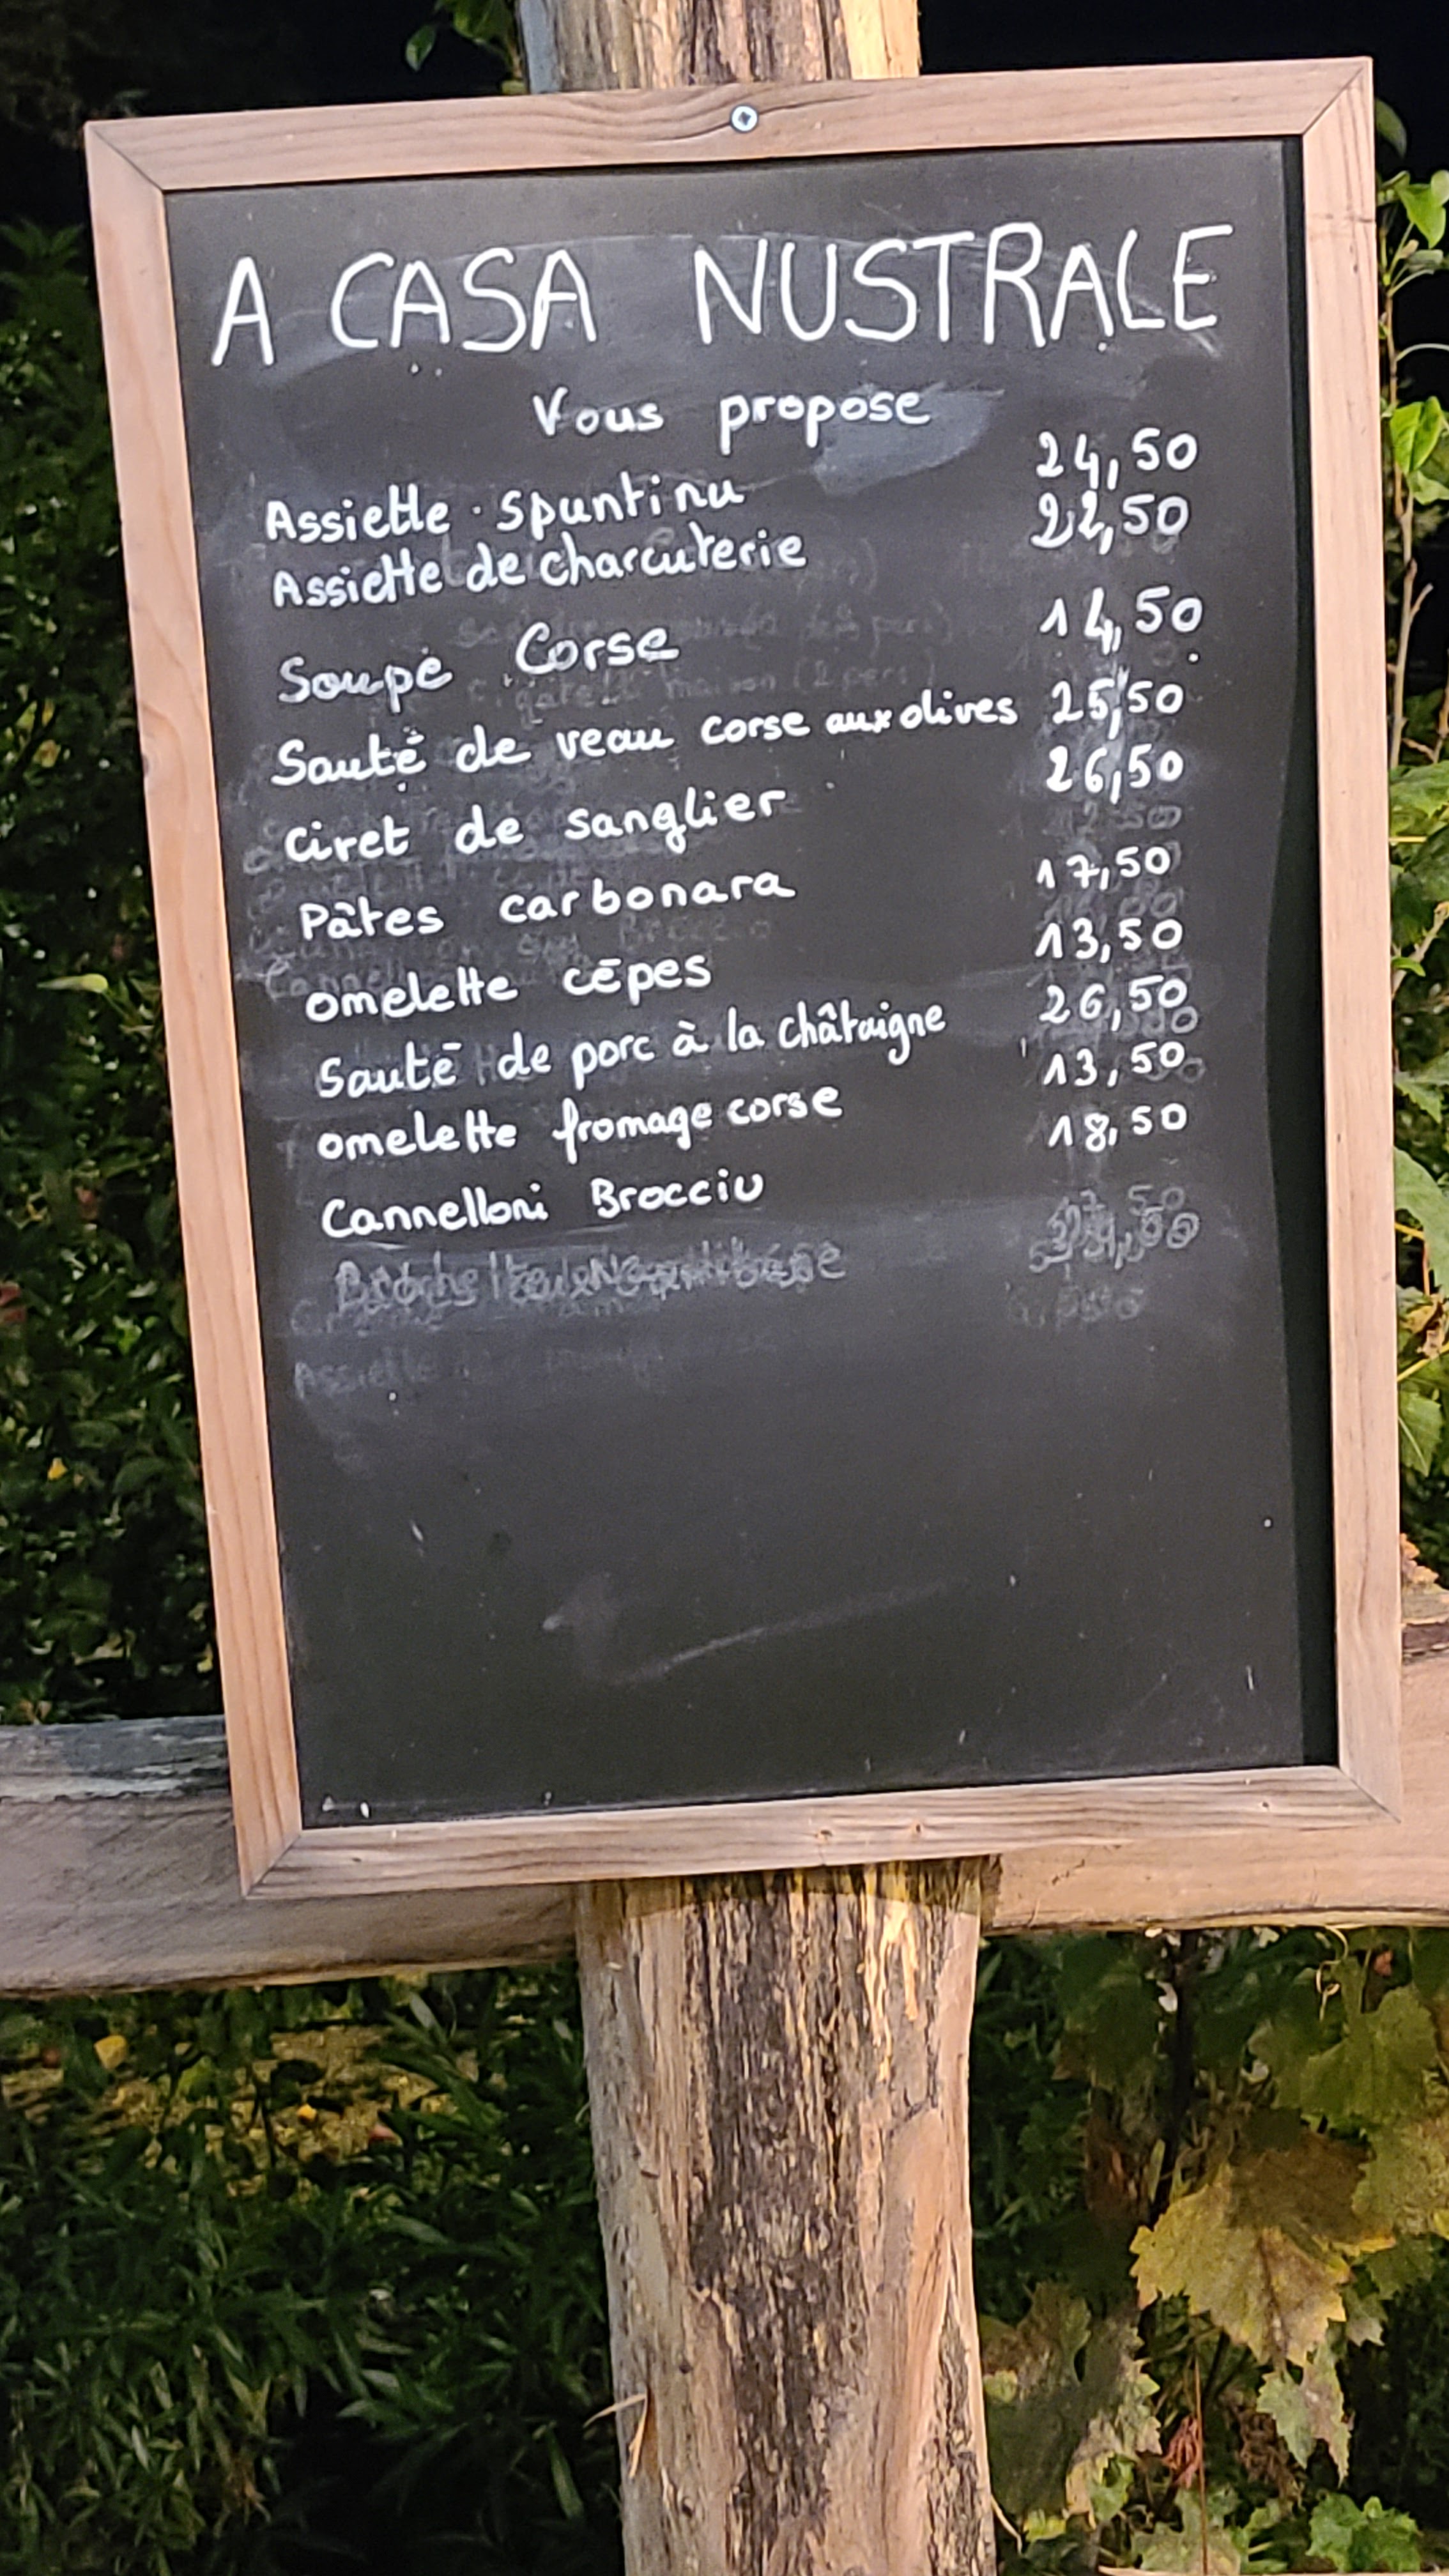 A CASA NUSTRALE
Vous propose
Assiette spuntinu 24,50
Assiette de charcuterie 22,50
Soupe Corse 14,50
Sauté de veau corse aux olives 25,50
Civet de sanglier 26,50
Pâtes carbonara 17,50
omelette cēpes 13,50
Sautē de porc à la châtaigne 26,50
omelette fromage corse 13,50
Cannelloni Brocciu 18,50
Assiette